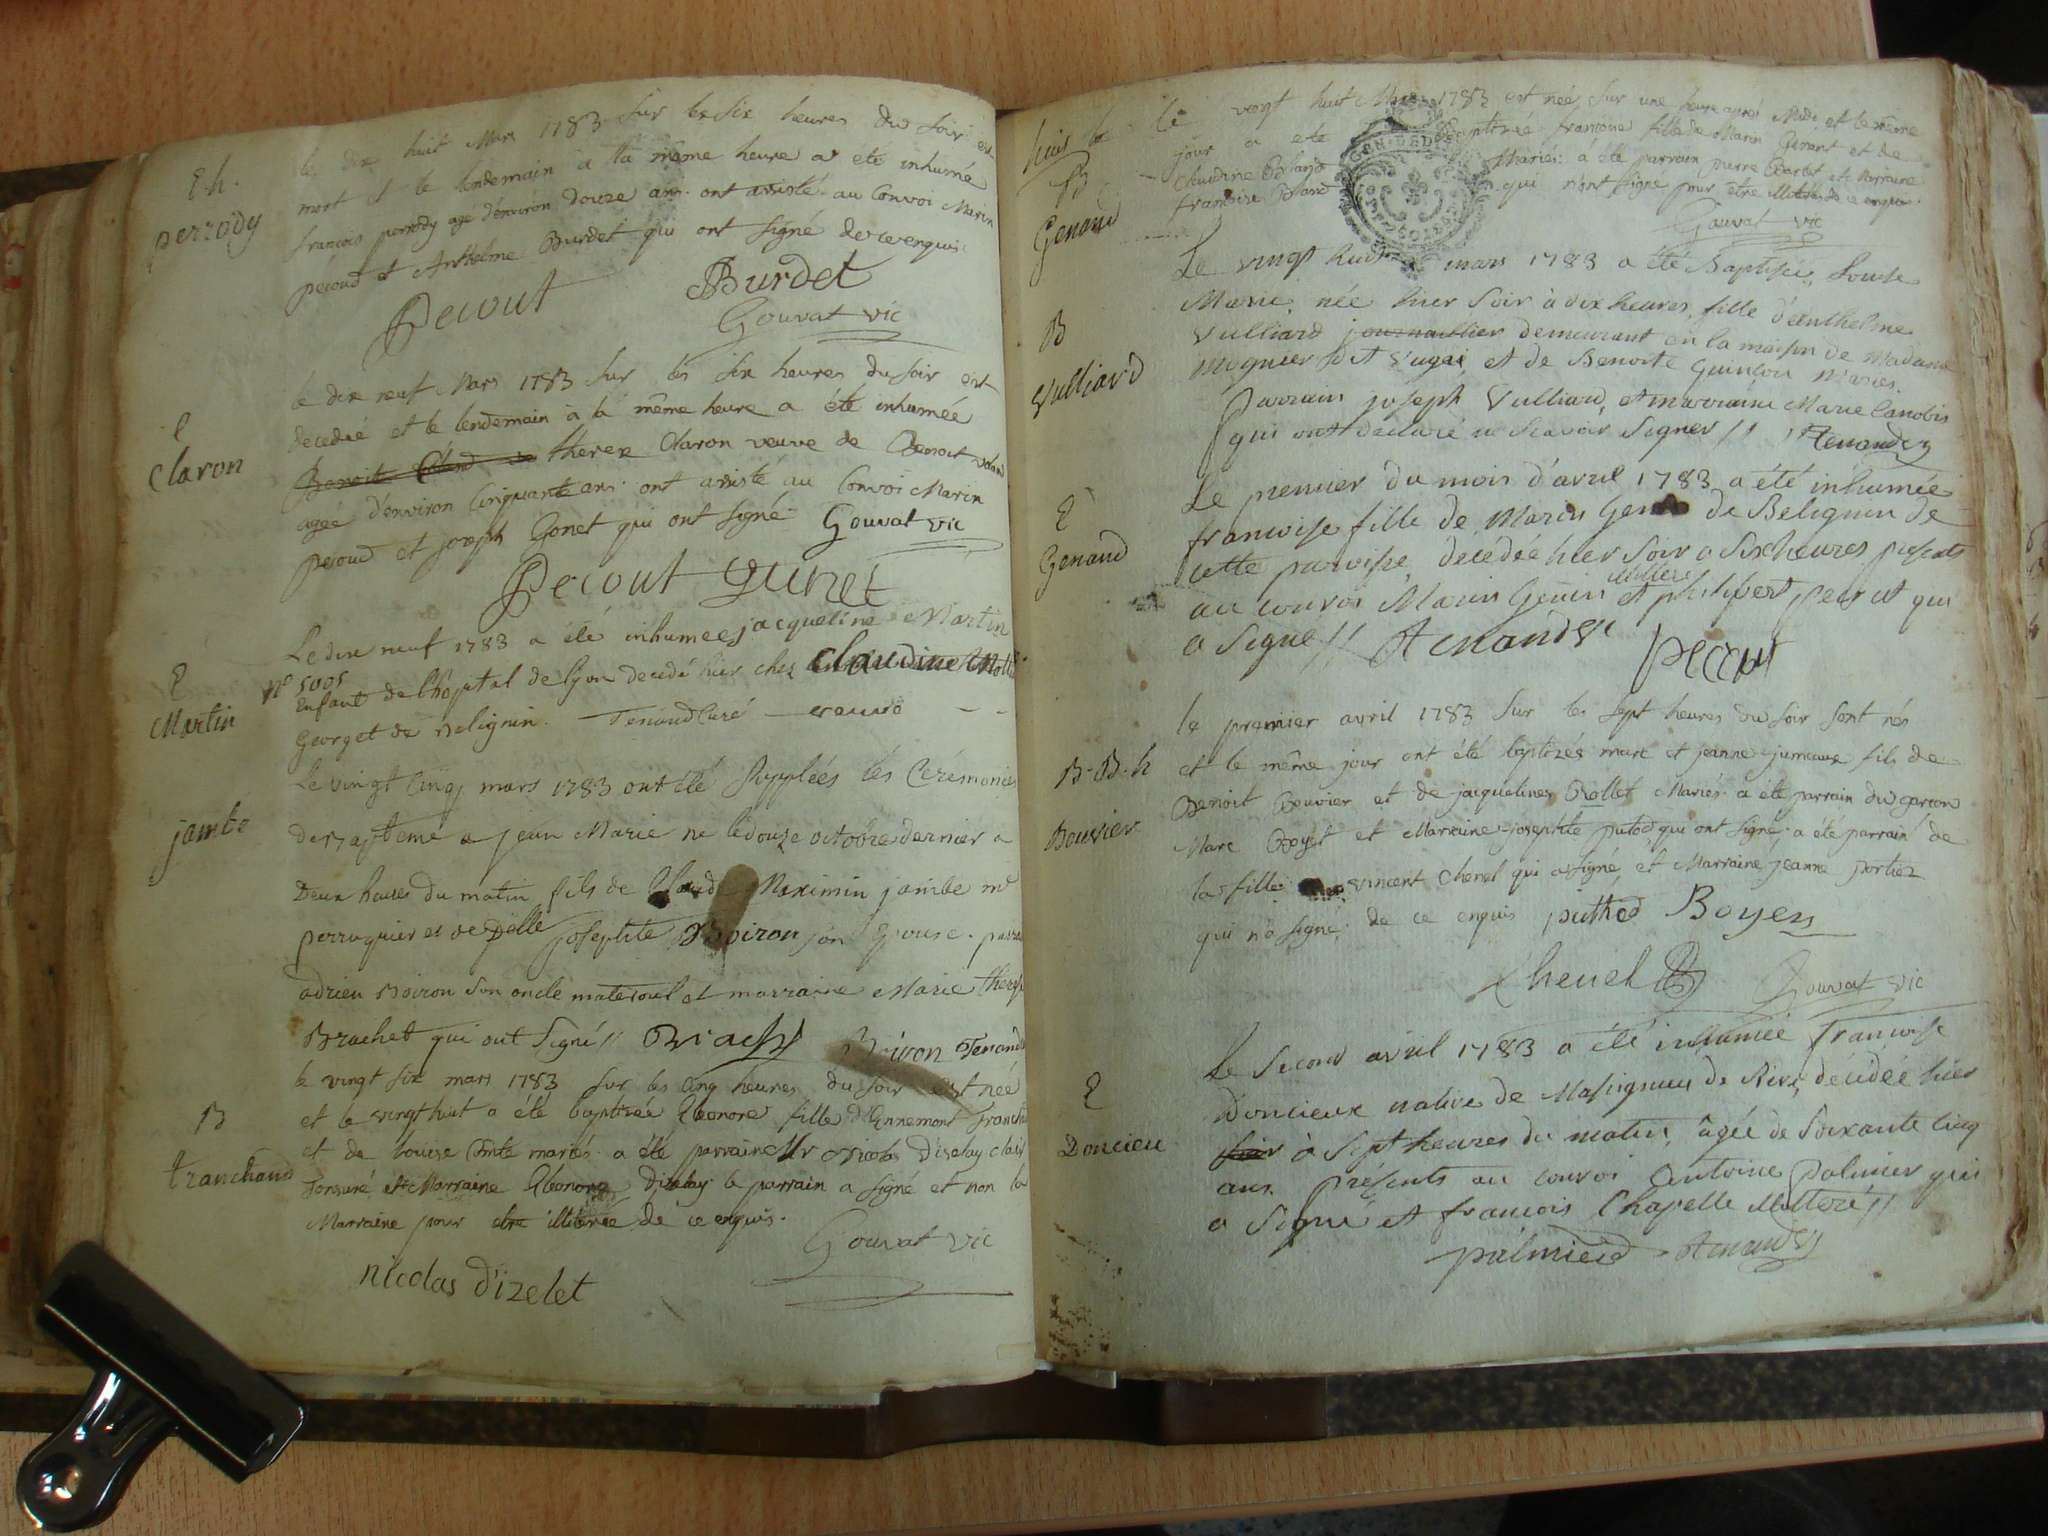 E. h.
perrody
le dix huit Mars 1783 sur les six heures du soir est
mort et le lendemain a la même heure a été inhumé
françois perrody agé d'environ douze ans. ont assisté au Convoi Marin
pecoud et Anthelme Burdet qui ont signé de ce enquis.
Pecout Burdet
Gouvat vic
E
Claron
le dix neuf Mars 1783 sur les six heures du soir est
decedée et le lendemain à la même heure a été inhumée
therese Claron veuve de Benoit
agée d'environ Cinquante ans. ont assisté au Convoi Marin
pecoud et joseph Gonet qui ont signé Gouvat vic
Pecout gunet
E
Martin
Le dix neuf 1783 a été inhumée jacqueline Martin
n° 5005
Enfant de l'hôpital de lyon decedé hier chez Claudine
Georget de Belignin. Tenand Curé
jambe
Le vingt Cinq mars 1783 ont été Suppléés les Cerémonies
du Baptême a jean Marie né le douze octobre dernier a
Deux heures du matin fils de Claude Maximin jambe me
perruquier et de Delle josephte Boiron son Epouse.
adrien Boiron son oncle maternel et marraine Marie
Brachet qui ont Signé // Brachet Boiron Tenand
B
tranchand
le vingt six mars 1783 sur les cinq heures du soir est née
et le vingt huit a été baptisée Eleonore fille d'Ennemont
et de louise Comte mariés. a été parrain Mr Nicolas Dizelay clerc
tonsuré et Marraine Eleonore Dizelay. le parrain a signé et non la
Marraine pour etre illiterée de ce enquis.
Gouvat vic
nicolas dizelet
B
Genand
Le vingt huit Mars 1783 est née sur une heure après Midi et le même
jour a été baptisée françoise fille de Marin Genant et de
Claudine Bland Mariés: a été parrain pierre et Marraine
françoise Bland qui n'ont signé pour être illiterés de ce enquis.
Gouvat vic
B
Vulliard
Le vingt huit mars 1783 a été Baptisée Louise
Marie née hier Soir à dix heures, fille d'Anthelme
Vulliard journaillier demeurant en la maison de Madame
Mognier dit et de Benoite Guinson Mariés.
Parrain joseph Vulliard, et marraine Marie
qui ont déclaré ne Scavoir Signer // Tenand
E
Genand
Le premier du mois d'avril 1783 a été inhumée
françoise fille de Marin de Belignin de
cette paroisse, décédée hier Soir a Six heures présents
au convoi Marin Genin illiteré et philibert pecout qui
a Signé // Tenand
pecout
B. B. h
Bouvier
le premier avril 1783 sur les sept heures du soir sont nés
et le même jour ont été baptizés marc et jeanne jumeaux fils de
Benoit Bouvier et de jacqueline Rollet Mariés. a été parrain du garçon
Marc Boyet et Marraine josephte putod qui ont signé; a été parrain de
la fille vincent Chenel qui a signé, et Marraine jeanne portier
qui n'a signé: de ce enquis puthod Boyer
Chenel Gouvat vic
E
Doncieu
Le Second avril 1783 a été inhumée françoise
Doncieux native de Massigneu de Rive, décédée hier
à Sept heures du matin, âgée de Soixante Cinq
ans. présents au convoi Antoine palmier qui
a Signé et francois Chapelle illiteré //
palmier Tenand